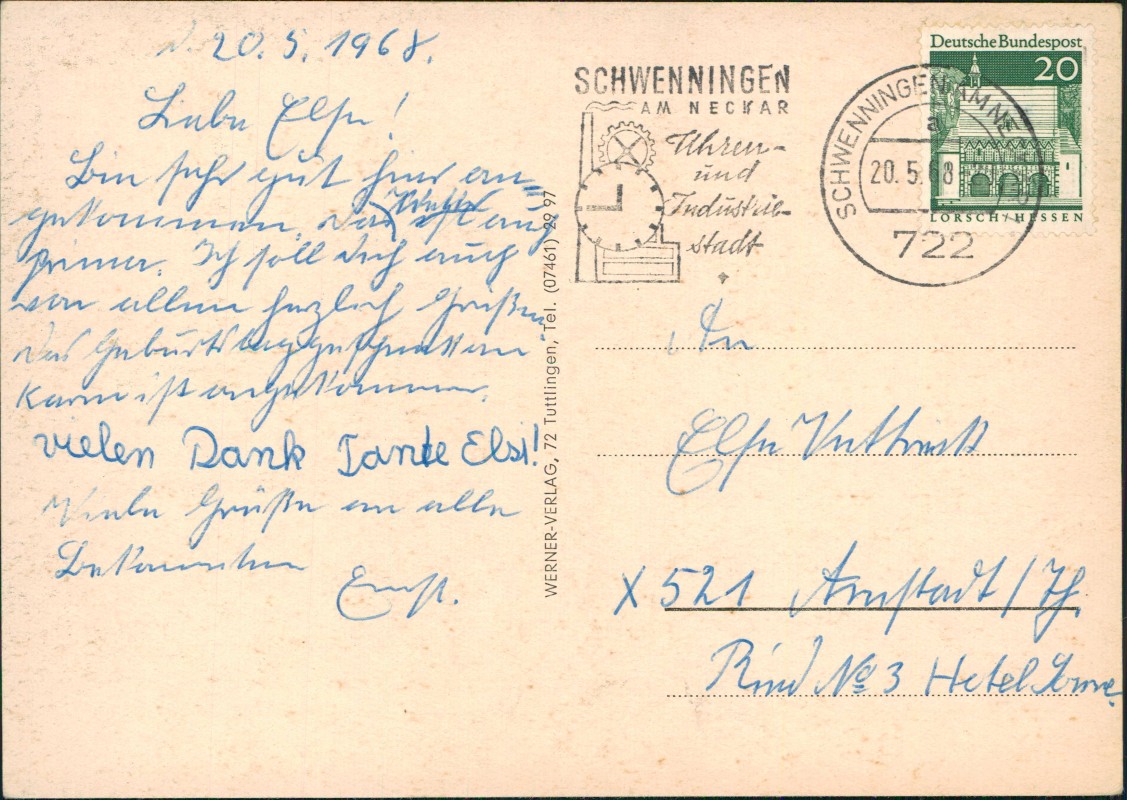 20. 5. 1968.
Liebe Else!
Bin sehr gut hier an=
gekommen. Das Wetter ist auch
prima. Ich soll dich auch
von allen herzlich Grüßen
Das Geburtstagsgeschenk an
Karin ist angekommen.
vielen Dank Tante Elsi!
Viele Grüße an alle
Bekannten
Ernst.
WERNER-VERLAG, 72 Tuttlingen, Tel. (07461) 29 97
SCHWENNINGEN
AM NECKAR
Uhren-
und
Industrie-
stadt
SCHWENNINGEN AM NE
a
20. 5. 68
722
Deutsche Bundespost
20
LORSCH/HESSEN
An
Else
X 521 Arnstadt/Th.
Ried No 3 Hotel Sonne